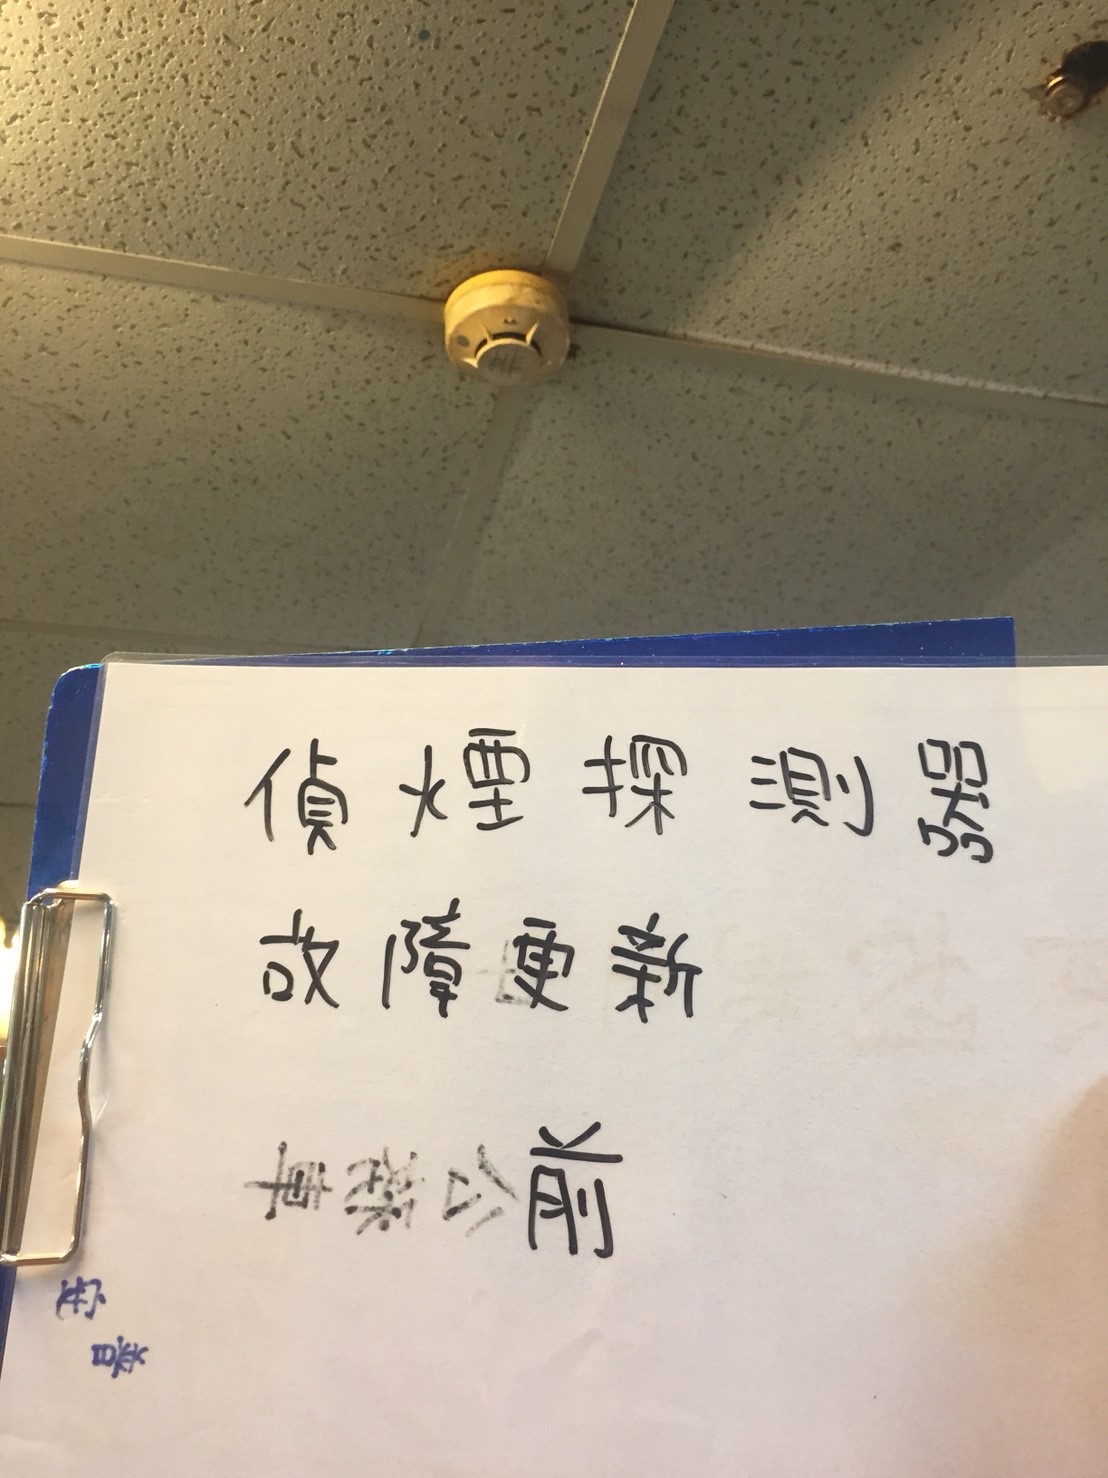 偵煙探測器
故障更新
前